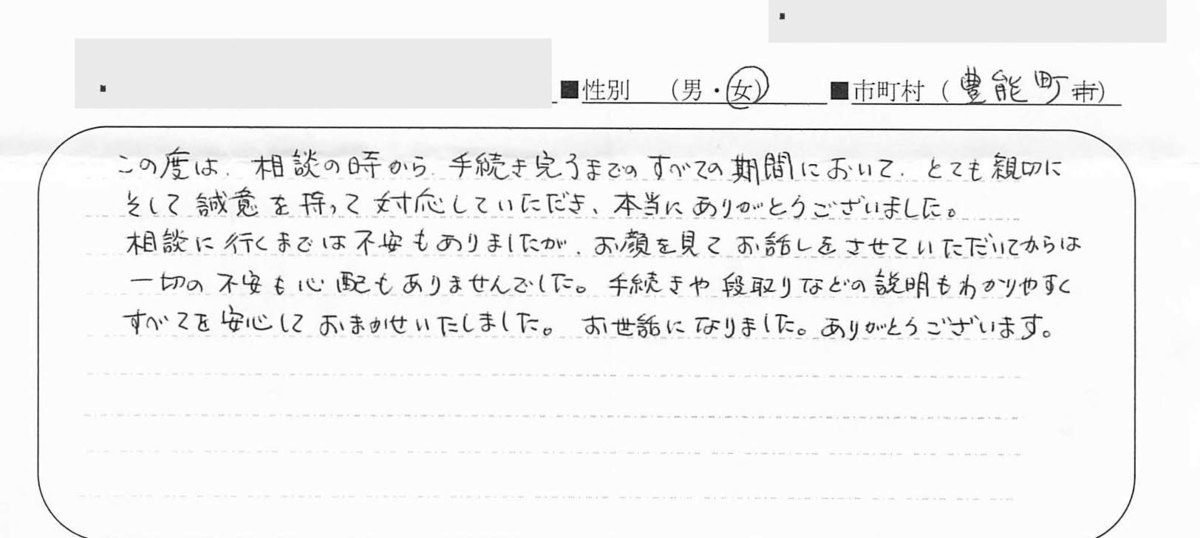 ■性別 （男・女） ■市町村（豊能町市）
この度は、相談の時から、手続き完了までのすべての期間において、とても親切に
そして誠意を持って対応していただき、本当にありがとうございました。
相談に行くまでは不安もありましたが、お顔を見てお話しをさせていただいてからは
一切の不安も心配もありませんでした。手続きや段取りなどの説明もわかりやすく
すべてを安心しておまかせいたしました。お世話になりました。ありがとうございます。